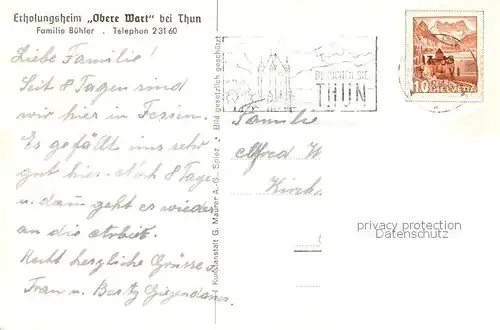 Erholungsheim „Obere Wart" bei Thun
Familie Bühler . Telephon 2 31 60
Liebe Familie!
Seit 8 Tagen sind
wir hier in Ferien.
Es gefällt uns sehr
gut hier. Noch 8 Tage
u. dann geht es wieder
an die Arbeit.
Recht herzliche Grüsse v.
Fram u. Giegendanner.
Kunstanstalt G. Maurer A.-G., Spiez • Bild gesetzlich geschützt
BESUCHEN SIE
THUN
10
HELVETIA
Familie
Alfred W
Kirch
privacy protection
Datenschutz